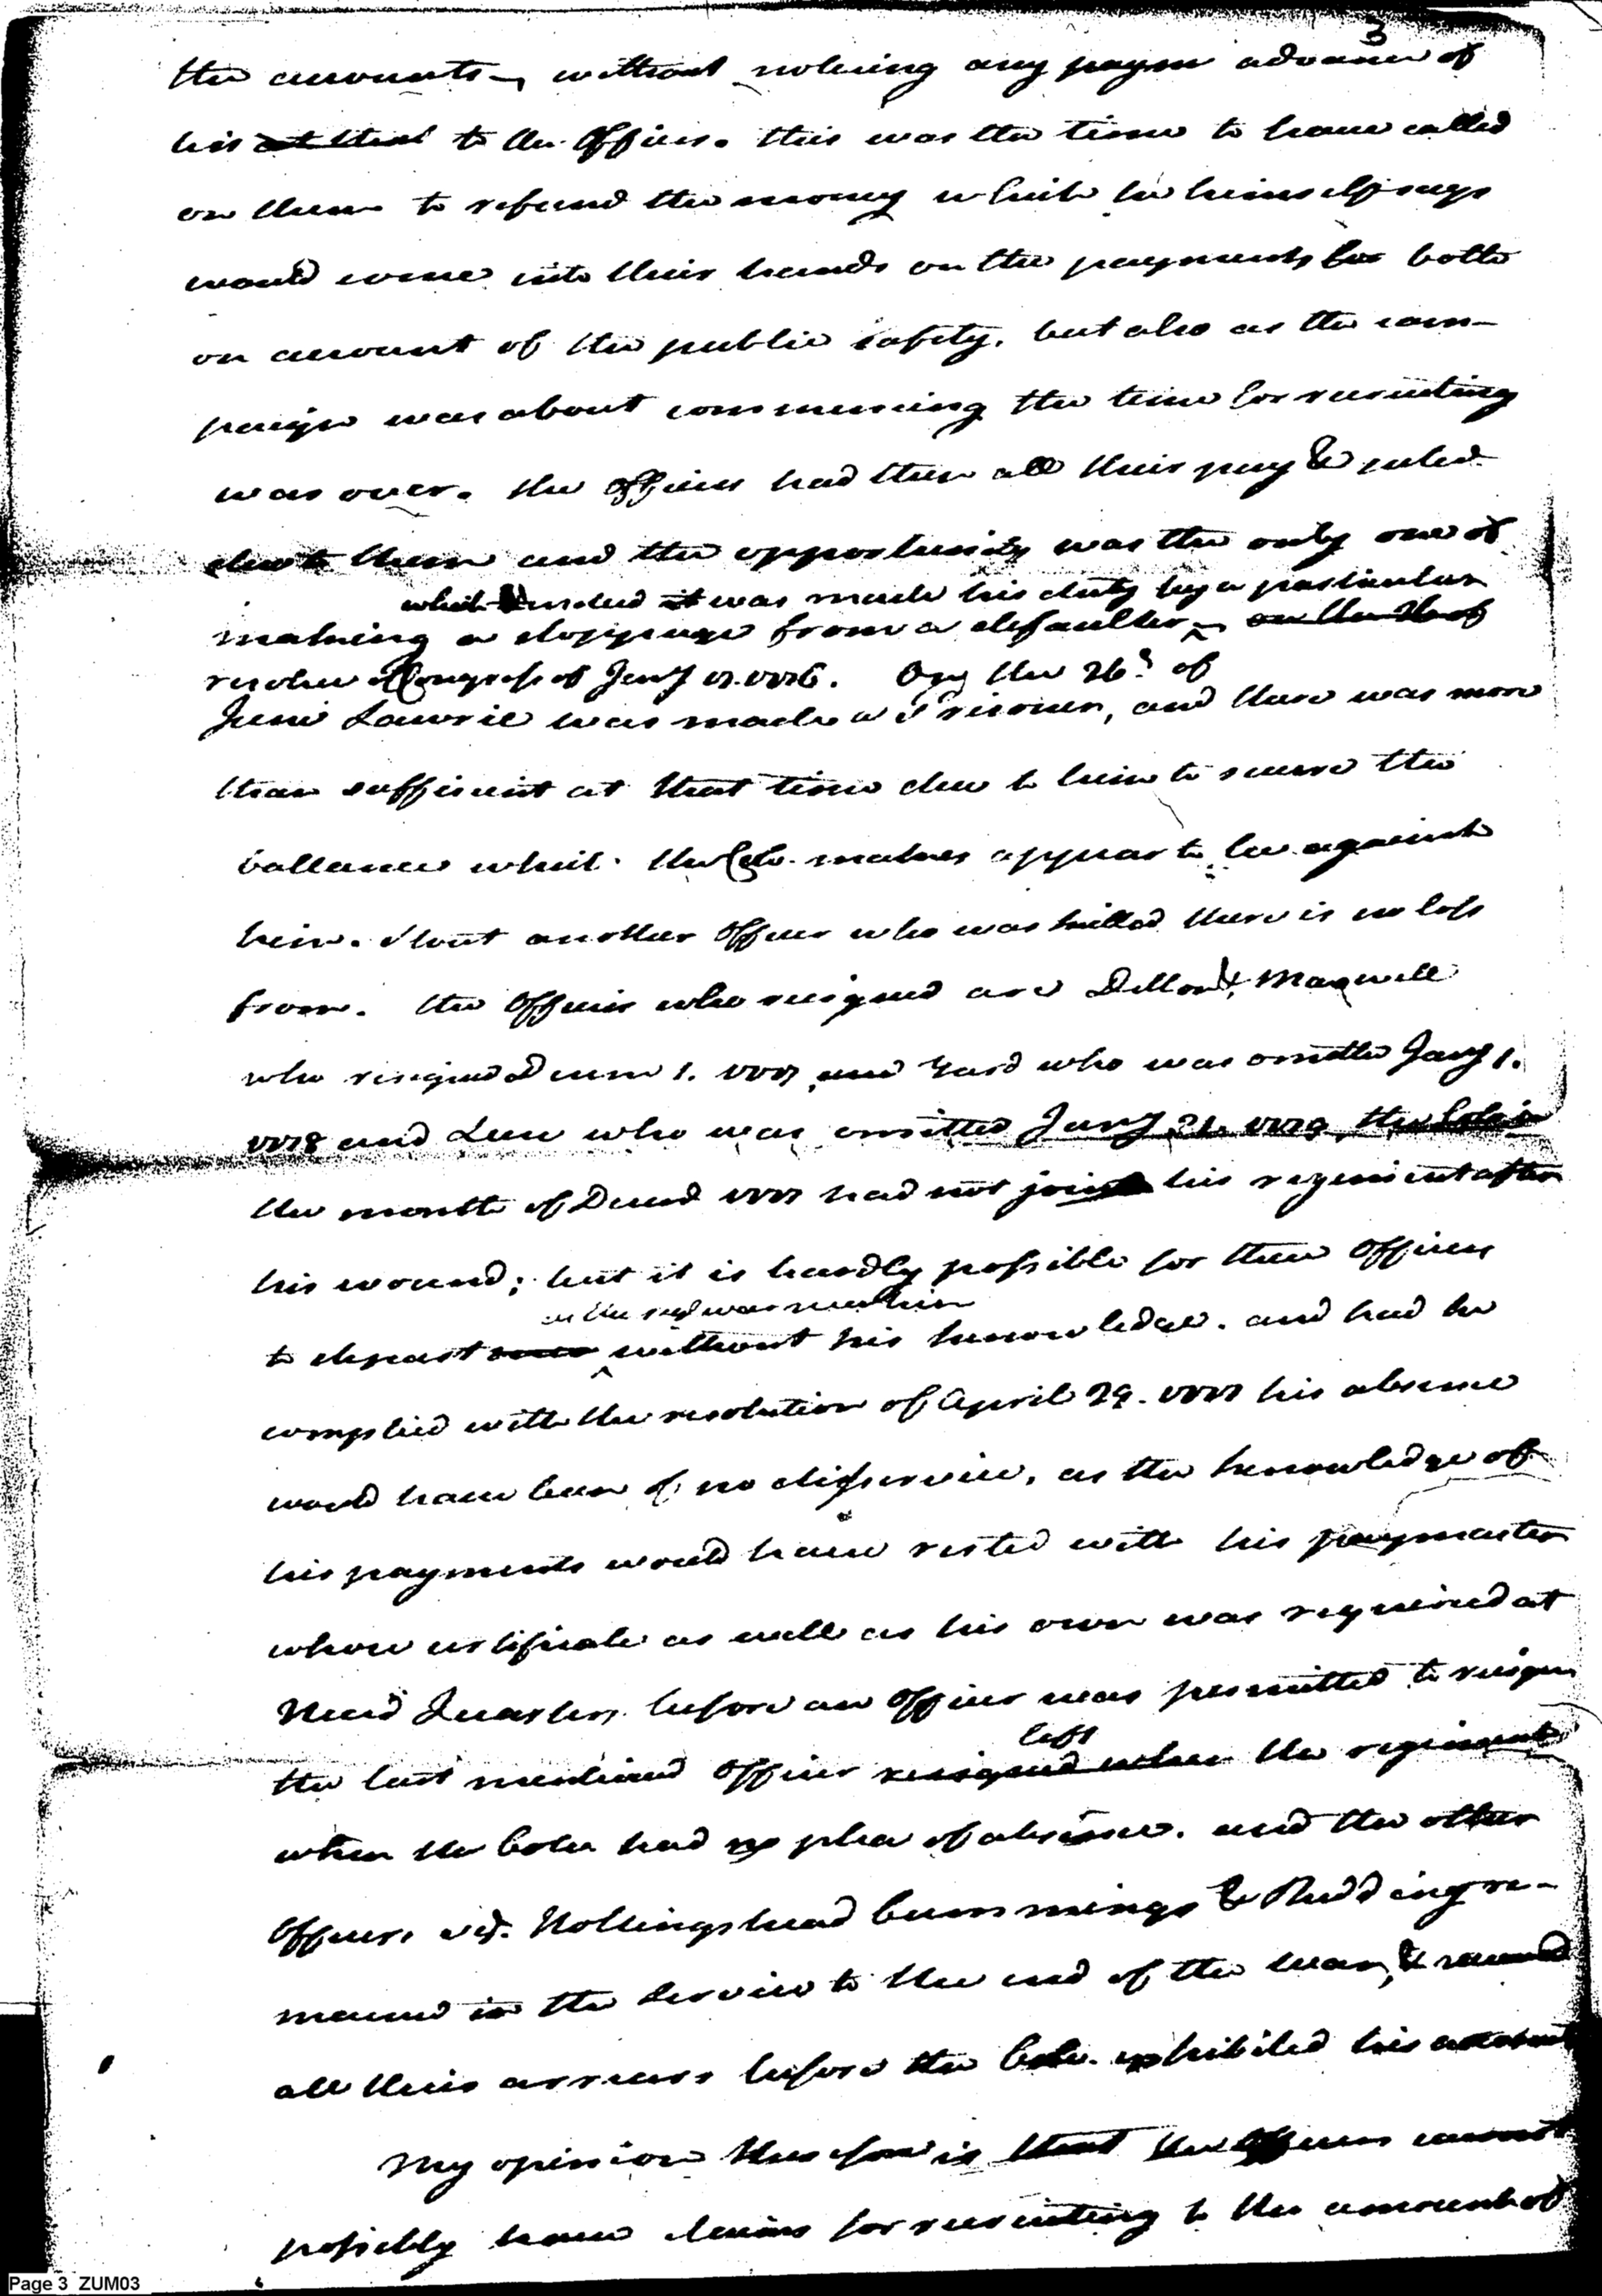 3
the accounts, without noticing any paym advances of
his at that to the Officers. this was the time to have called
on them to refund the money which he himself says
would come into their hands on the payments for both
on account of the public safety, but also as the cam-
paign was about commencing the time for recruiting
was over. the Officers had then all their pay & subsd.
due to them and the opportunity was the only one of
which indeed it was made his duty by a particular
making a stoppage from a defaulter, on the 26 of
resolve of Congress of Jany 17. 1776. On the 26th of
June Lawrie was made a Prisoner, and there was more
than sufficient at that time due to him to secure the
ballance which the Colo. makes appear to be against
him. Stout another Officer who was killed there is no loss
from. the Officers who resigned are Dillon & Maxwell
who resigned Decem 1. 1777, and Yard who was omitted Jany 1.
1778 and Lunn who was omitted Jany 21. 1779, the Colo. in
the month of Decemd 1777 had not joined his regiment after
his wound; but it is hardly possible for these Officers
as the regt was near him
to depart without his knowledge. and had he
complied with the resolution of April 29. 1777 his absence
would have been of no disservice, as the knowledge of
his payments would have rested with his paymaster
whose certificate as well as his own was required at
Head Quarters before an Officer was permitted to resign
left
the last mentioned Officer resigned when the regiment
when the Colo. had no plea of absence. and the other
Officers vizt. Hollingshead Cummings & Rudd ing re-
mained in the service to the end of the war, & received
all their arrears before the Colo. exhibited his account
My opinion therefore is that the Officers cannot
possibly have claims for recruiting to the amount of
Page 3 ZUM03